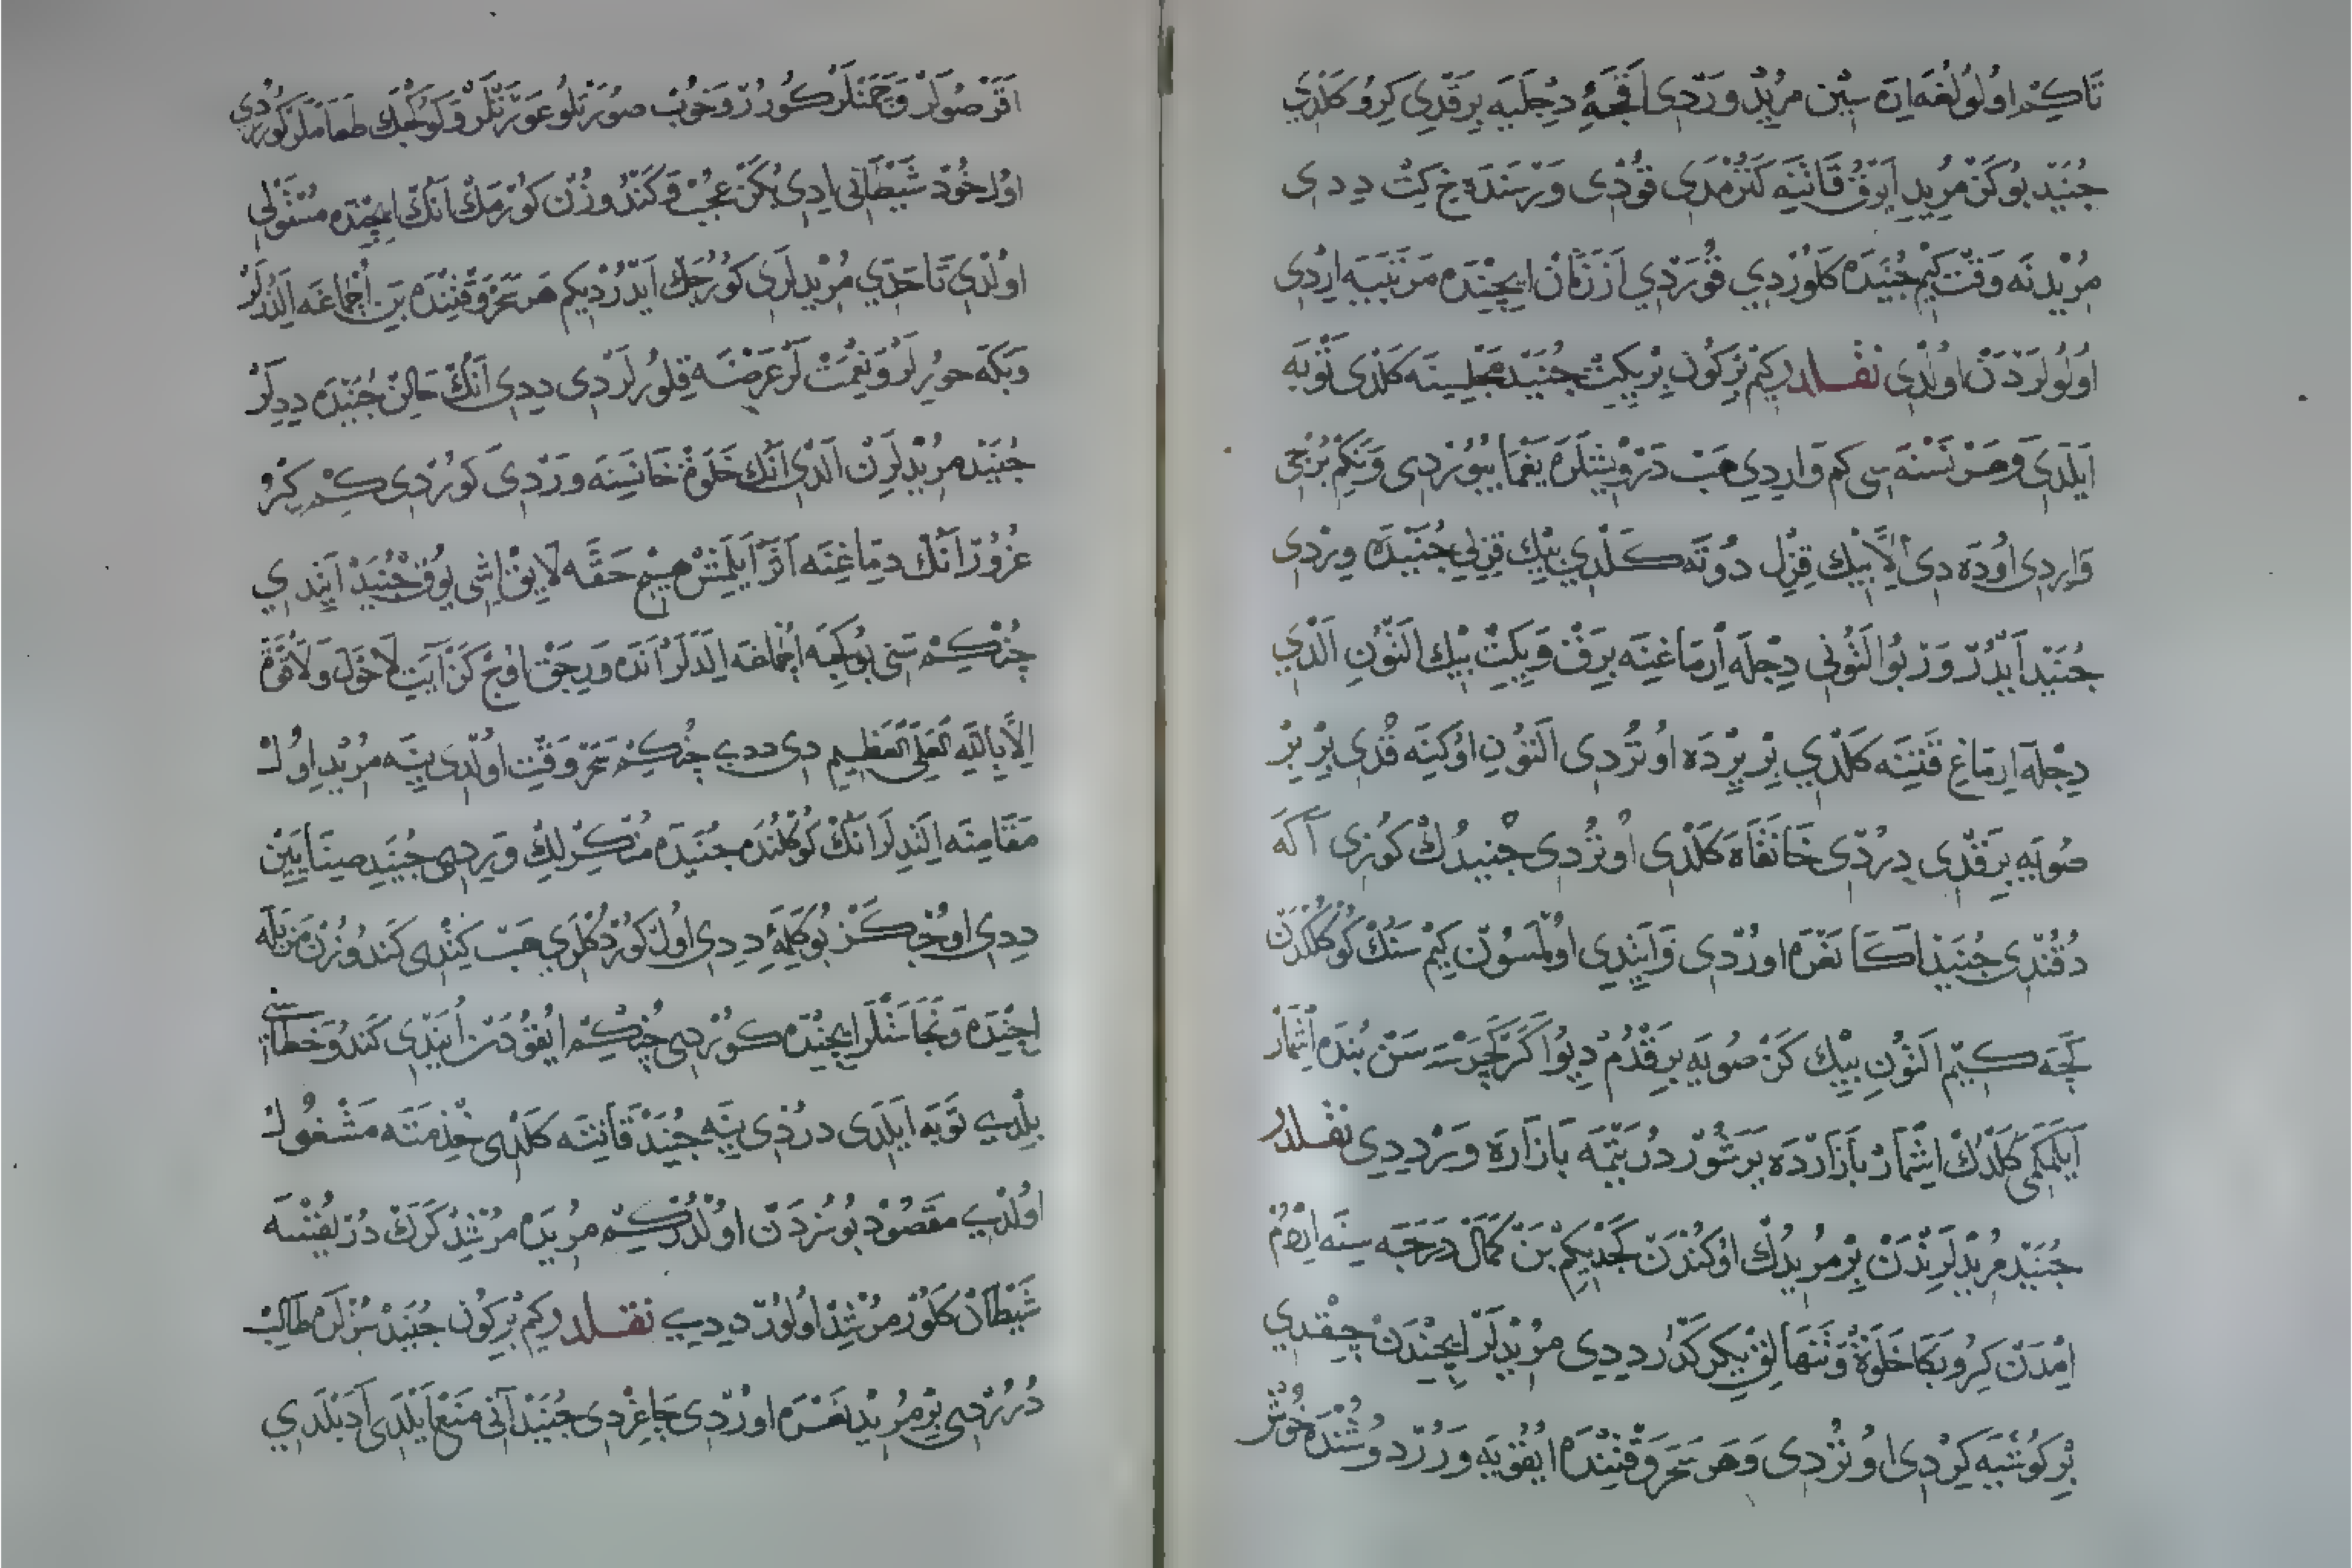 تَاكِمْ اوُلُولُغَه ايَره سِين مرُيدْ وَردِى اَقْچَهٔ دِجْلَيَه بِرَقْدِى كِرُو كَلْدِي
جُنَيْد بُو كَزْ مرُيدِ اَيرُقْ قَاتنَه كَتُرْمَدِى قوُدِى وَرْسَنْدَه خ كِتْ دِدِى
مُرْيدْ نَه وَقْت كِيم جُنَيْدَه كَلوُرْدِي قُوَرْدِي اَزْ زَمَانْ ايچِنْدَه مَرْتَبَيَه اِرْدِى
اوُلُولَرْدَنْ اوُلْدِى نقلدر كِمْ بْرِكُون بْرِ يِكِتْ جُنَيْد مَجْلِسِنَه كَلْدِى تَوْبَه
اَيلَدِى وَهَرْ نَسْنَه سِى كِم وَارِدِى هَبْ دَرْوِيشلَرَه يَغْمَا بيُوُرْدِى وَنَكِمْ بُرْجِى
وَارِدِى اوُدَه دِى اِلَّا بِيْك قِزِل دوُتَه كَلْدِي بِيْك قِزِلِي جُنَيْدَه وِيرْدِى
جُنَيْد اَيْدُرْ وَرْ بُو الْتُونِي دِجْلَه اِرمَاغِنَه بِرَقْ وَيِكِتْ بِيْك الْتُونِ اَلْدِي
دِجْلَه اِرمَاغِ قَتِنَه كَلْدِي بِرْ يِرْدَه اوُتُرْدِى الْتوُنِ اوُكِنَه قُدِى بِرْ بِرْ
صُويَه بِرَقْدِى دِرْدِى خَانقَاه كَلْدِى اوُتُرْدِى جُنيدُكْ كوُزِى اَكَه
دُقُنْدِى جُنَيْد اَكَا نَعْرَه اورُدِى وَاَيْتدِى اوُلْمَسُونْ كِيمْ سَنُكْ كُوكُلُكْدَنْ
كَچَه كِيم الْتُونِ بِيْك كَزْ صُويَه بِرَقْدُمْ دِيُو اَكَرْ كَچَرْسَه سَنْ بُنْدَه اِشْمَازْ
اَيلَمَكَمِى كَلْدُكْ اِشْمَازْ بَازَارْدَه يَرَشُورْ دُرْ يَتْمَه بَازَارَه وَرْ دِدِى نقلدر
جُنَيْد مُرْيدْلَرِنْدَنْ بِرْ مرُيدُكْ اوُكُنْدَنْ كَچْدِيكِمْ بَنْ كَمَالْ دَرَجَه سِنَه اِرْدُمْ
اِمْدَنْ كِرُو بَكَا خَلْوَةْ وَتَنْهَالِقْ يِكْرَكْدُرْ دِدِى مرُيدلَرْ اِيچِنْدَنْ چِقْدِي
بِرْ كُوشَيَه كِرْدِى اوُتُرْدِى وَهَر سَحَر وَقْتِنْدَه اُيقُويَه وَرُرْدِ دوُشُنْدَه خُوشْ
اقَرْ صُولَرْ وَچَمَنلَرْ كُورُرْ وَخُوبْ صوُرَتْلُو عَوْرَتْلَرْ وَكُوكْچَكْ طَعَاملَرْ كوُرِرْدِي
اوُلْ خُودْ شَيْطَانِي ادِى بُكَزْ عُجُبْ وَكَنْدُوزُنْ كوُرْمَكْ اَنُكْ ايچِنْدَه مُسْتَوْلِي
اوُلْدِي تَا حَدِّي مُرْيدلَرِى كوُرِيجَكْ اَيْدُرْدِيكِم هَر سَحَرْ وَقْتِنْدَه بَنِ اُچْمَاغَه الْتُرْلَرْ
وَبَكَه حوُرِ لَرْ وَنِعْمَتْ لَرْ عَرْضَه قِلُورْلَرْدِى دِدِى اَنُكْ حَالِنْ جُنَيْدَه دِدِلَرْ
جُنَيْدْ مرُيدْلَرِنْ اَلْدِى اَنُكْ خَلْوَةْ خَانَسِنَه وَرْدِى كوُرْدِى كِيم كِبْرُ
غرُوُرْ اَنُكْ دِمَاغِنَه اَثَرْ اَيلَمِشْ هِيچْ حَقَّه لَايِقْ اِشِى يوُقْ جُنَيْدْ اَيْتدِي
چُنْكِمْ سَنِي بُو كِيجَه اُچْمَاغَه اِلْتَه لَرْ اَنْدَه وَرِيجَقْ اوُچْ كَزْ اَيْتْ لَا حَوْلَ وَلَا قُوَّةَ
اِلَّا بِاللّٰهِ العَلِىِّ العَظِيمِ دِى دِدِى چُنْكِمْ سَحَرْ وَقْتِ اوُلْدِى يِنَه مرُيْد اوُلْ
مَقَامِنَه اِلَتْدِلَر اَنُكْ كُوكْلُنْدَه جُنَيْدَه مُنْكِرْلِكِ وَرِدِى جُنَيْدِ صِينَايَيِنْ
دِدِى اوُچ كَزْ بُو كَلِمَهِٔ دِدِى اوُلْ كوُرْدُكْلَرِي هَبْ كِتْدِى كَنْدوُزُنْ مَزْبَلَه
اِچِنْدَه وَنَجَاسَتْلَر اِيچِنْدَه كوُرْدِى چُنْكِمْ اُيقُودَنْ اُيَنْدِى كَنْدُو خَطَاسِنِي
بِلْدِي تَوْبَه اَيلَدِى دُرْدِى يِنَه جُنَيْدْ قَاتِنَه كَلْدِى خِذْمَتَه مَشْغُولْ
اوُلْدِي مَقْصُودْ بُو سُزدَنْ اوُلْدُرْكِيمْ مرُيدَه مُرْشِدْ كَرَكْ دُرْ يُقْسَه
شَيْطَانْ كَلوُرْ مُرْشِدْ اوُلوُرْ دِدِي نقلدر كِمْ بِرْ كُون جُنَيْد سُزْلَرْ طَالِبْ
دُرُرْدِى بِرْ مُريدْ نَعْرَه اورُدِى چَاغِرْدِى جُنَيْدْ اَنِى مَنْعْ اَيلَدِى اَدَبْلَدِي